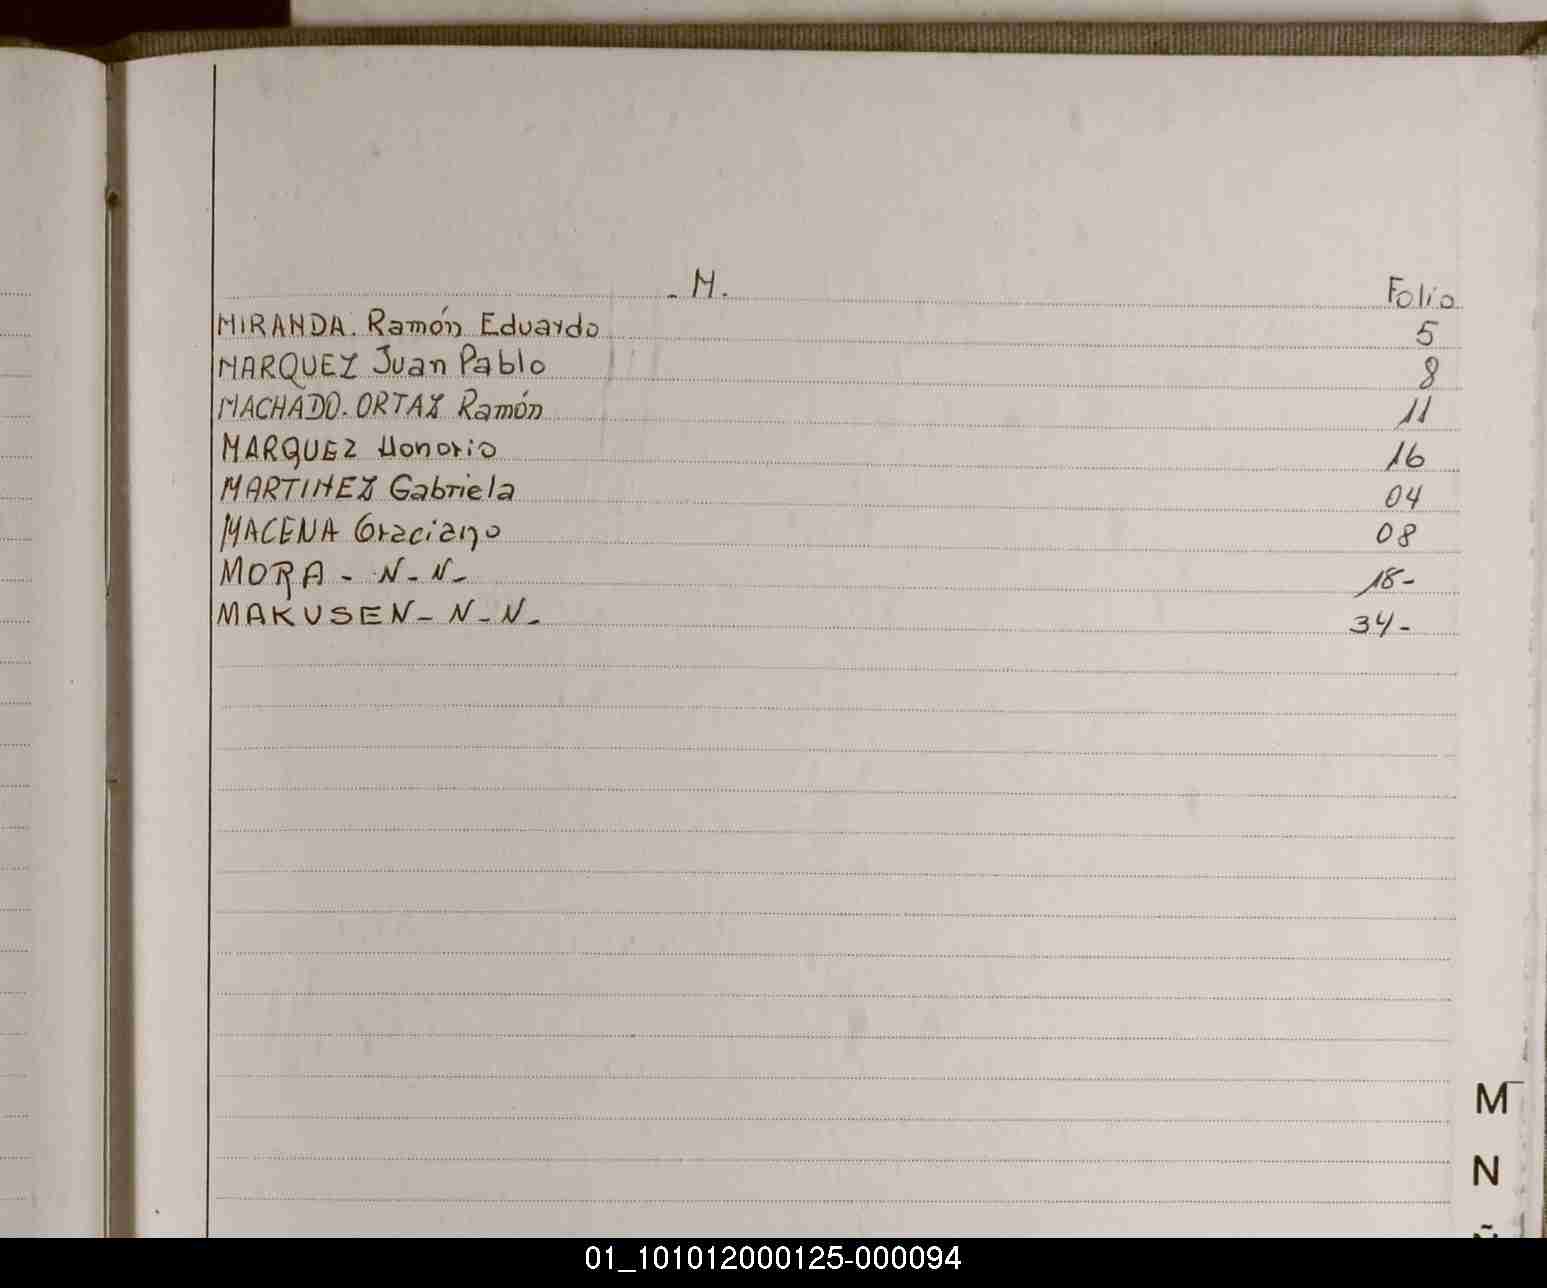 - M. Folio
MIRANDA. Ramón Eduardo 5
MARQUEZ Juan Pablo 8
MACHADO. ORTAZ Ramón 11
MARQUEZ Honorio 16
MARTINEZ Gabriela 04
MACENA Graciano 08
MORA - N - N - 18-
MAKUSEN - N - N - 34-
M
N
Ñ
01_101012000125-000094